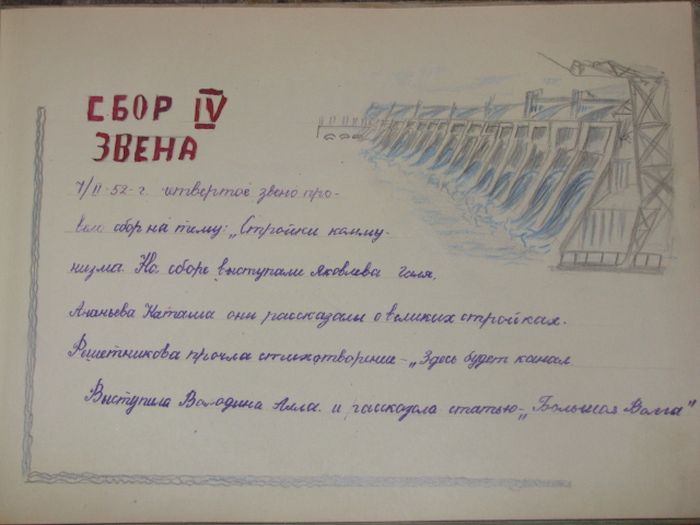 СБОР IV
ЗВЕНА
7/II-52-г. четвертое звено про-
вело сбор на тему: „Стройки комму-
низма. На сборе выступали Яковлева Галя,
Ананьева Наташа они рассказали о великих стройках.
Решетникова прочла стихотворение - „Здесь будет канал
Выступила Володина Алла. и рассказала статью - „Большая Волга"